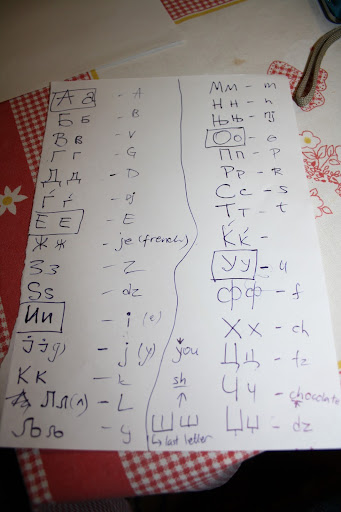 А а - A
Б б - B
В в - V
Г г - G
Д д - D
Ѓ ѓ - gj
Е Е - E
Ж ж - je (french)
З з - Z
Ѕ ѕ - dz
И и - i (e)
Ј ј - j (y) you
К к - k
Л л (л) - L
Љ љ - y
М м - m
Н н - n
Њ њ
О о - o
П п - P
Р р - R
С с - S
Т т - t
Ќ ќ -
У у - u
Ф ф - f
Х х - ch
Ц ц - tz
Ч ч - chocolate
Џ џ - dz
sh
Ш ш
last letter